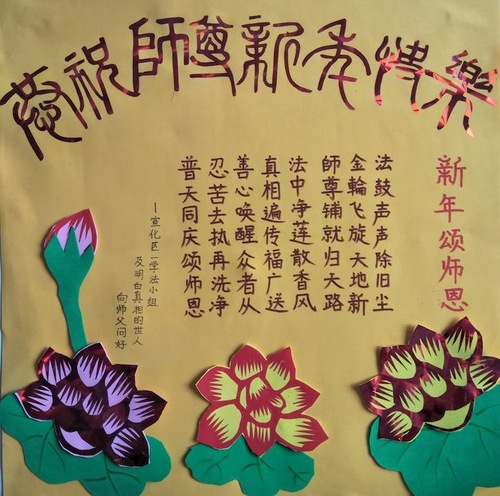 恭祝師尊新年快樂
新年颂师恩
法鼓声声除旧尘
金輪飞旋天地新
師尊铺就归天路
法中净莲散香风
真相遍传福广送
善心唤醒众者从
忍苦去执再洗净
普天同庆颂师恩
宣化区一学法小组
及明白真相的世人
向师父问好